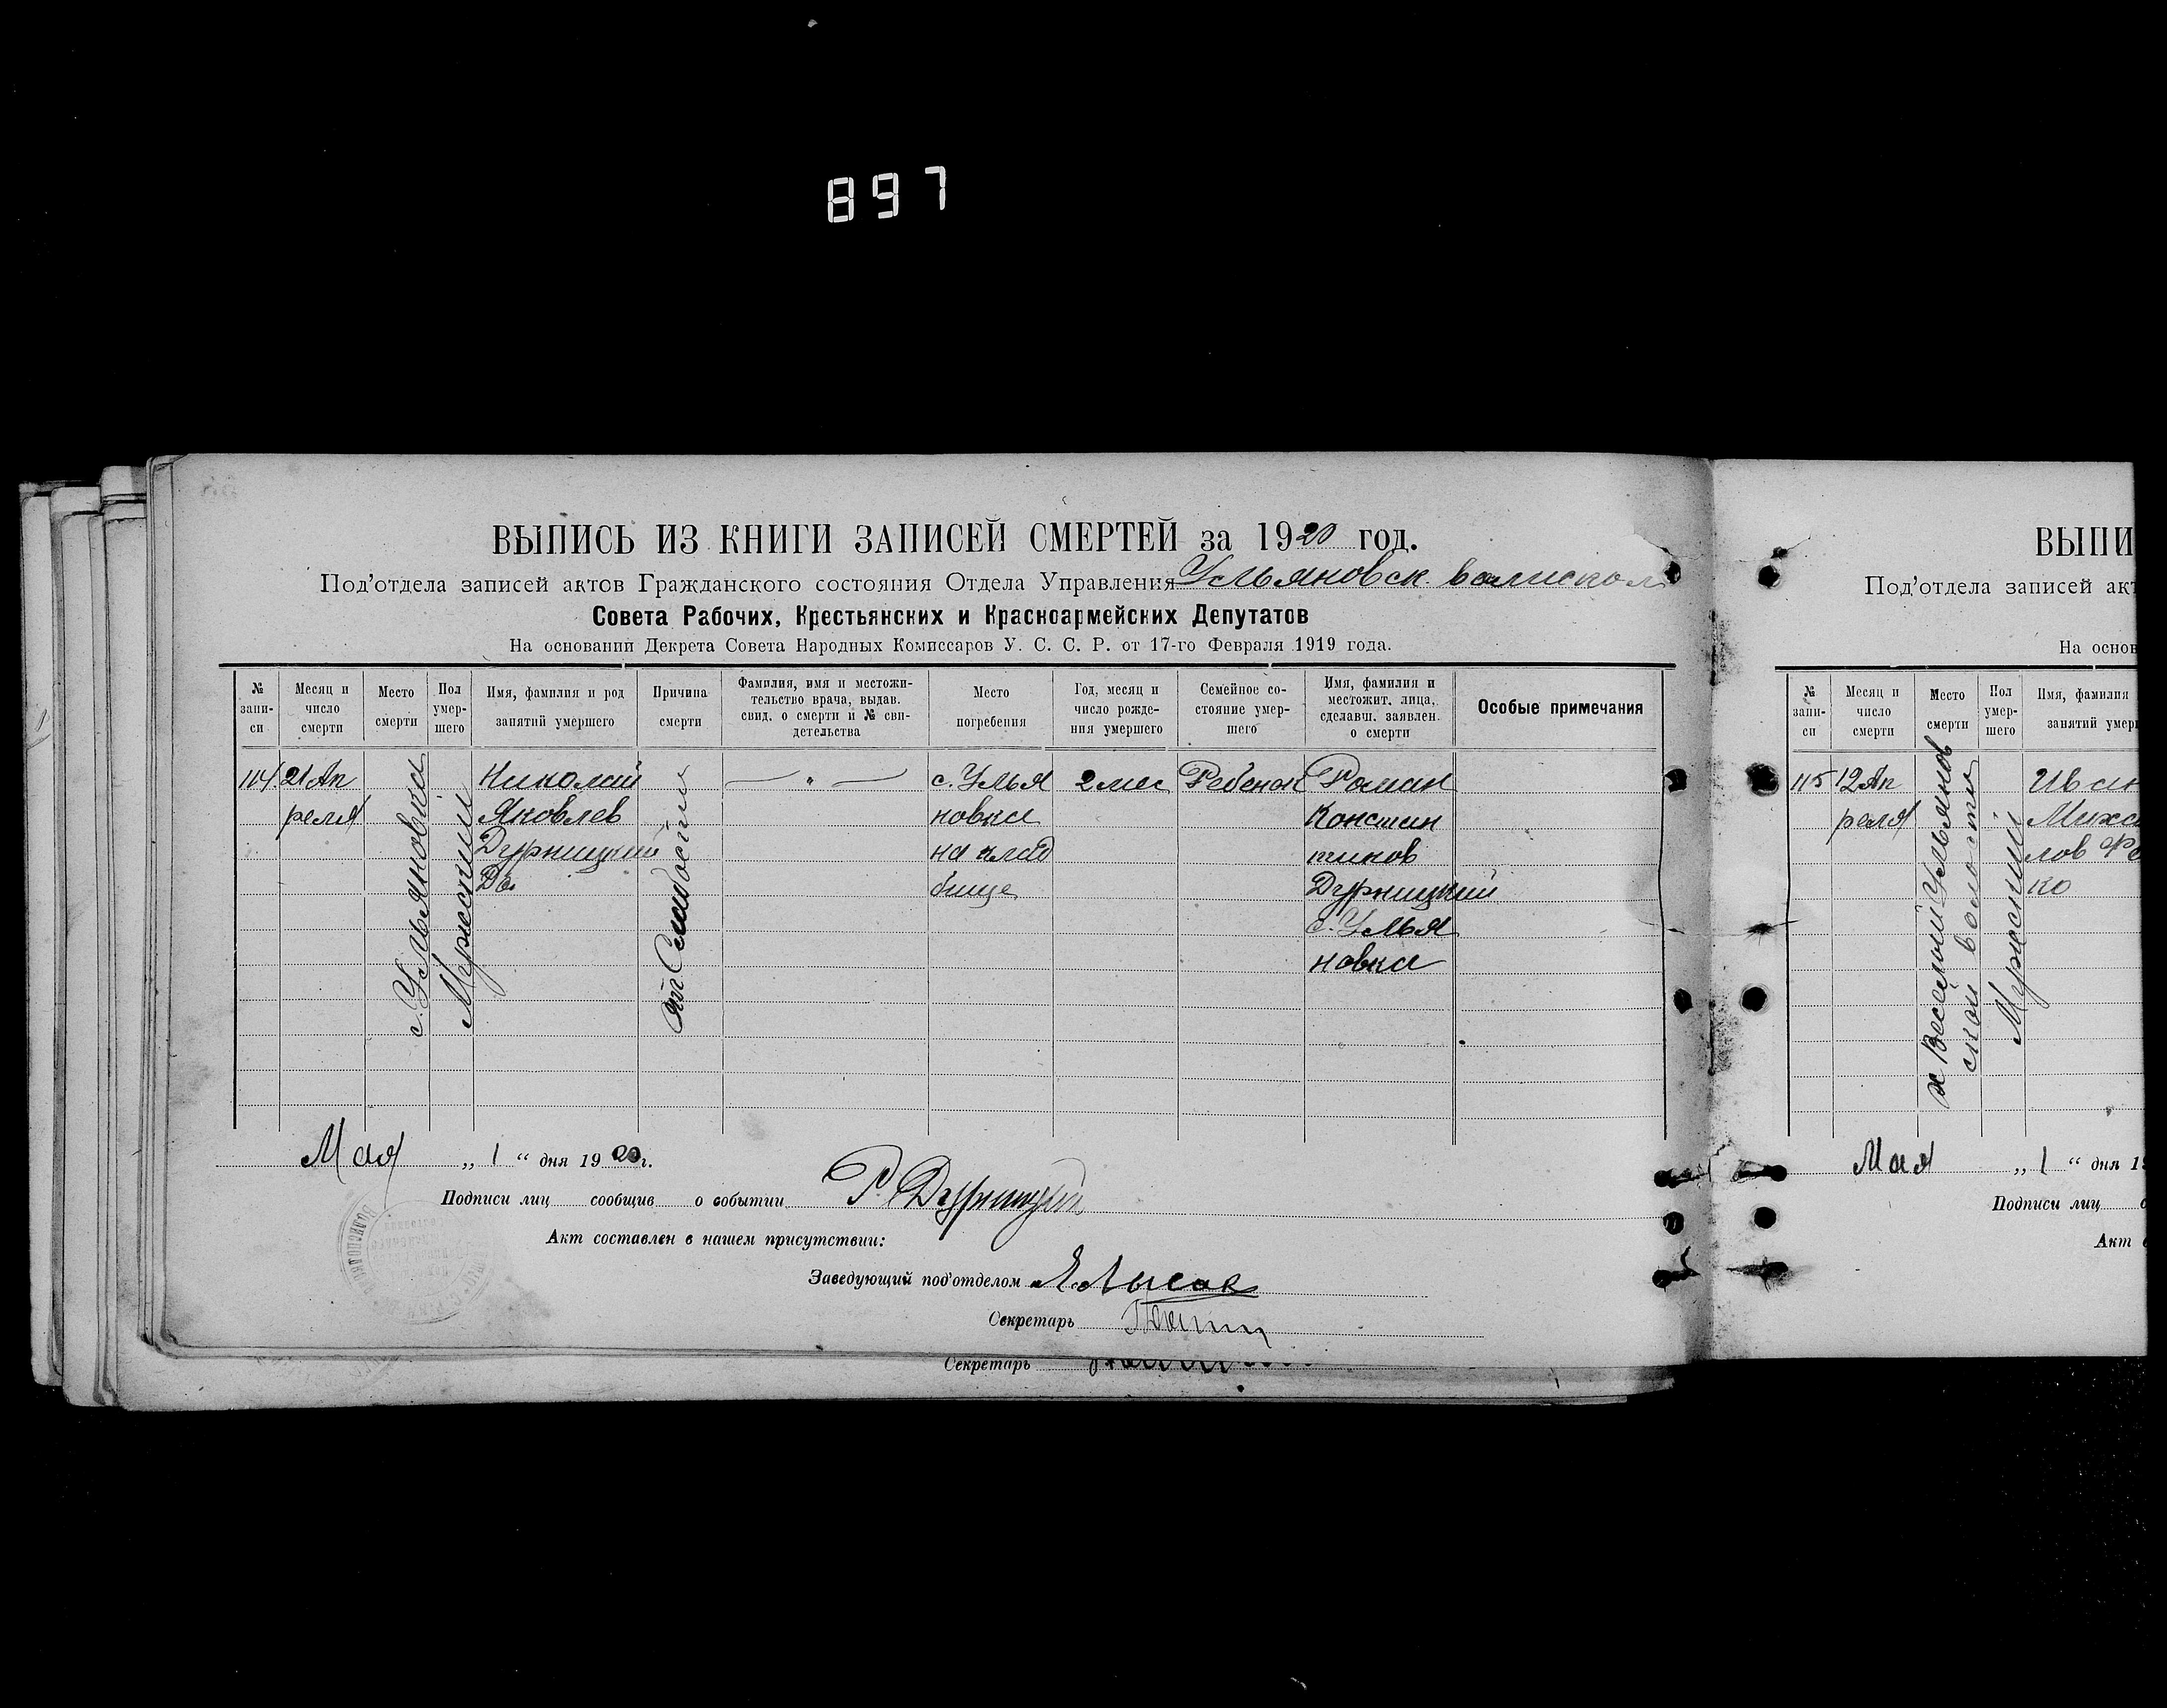 897
ВЫПИСЬ ИЗ КНИГИ ЗАПИСЕЙ СМЕРТЕЙ за 1920 год.
Под'отдела записей актов Гражданского состояния Отдела Управления Ульяновск волиспол
Совета Рабочих, Крестьянских и Красноармейских Депутатов
На основании Декрета Совета Народных Комиссаров У. С. С. Р. от 17-го Февраля 1919 года.
№ запи-
си
Месяц и
число
смерти
Место
смерти
Пол
умер-
шего
Имя, фамилия и род
занятий умершего
Причина
смерти
Фамилия, имя и местожи-
тельство врача, выдав.
свид. о смерти и № сви-
детельства
Место
погребения
Год, месяц и
число рожде-
ния умершего
Семейное со-
стояние умер-
шего
Имя, фамилия и
местожит. лица,
сделавш. заявлен.
о смерти
Особые примечания
114
21 Ап
реля
с. Ульяновка
Мужеский
Николай
Яковлев
Дурницкий
от Слабости
— " —
с. Улья
новка
на клад
бище
2 мес
Ребенок
Роман
Констан
тинов
Дурницкий
с. Улья
новка
Мая „ 1 “ дня 1920 г.
Подписи лиц сообщив о событии Р. Дурницкий
Акт составлен в нашем присутствии:
Заведующий под'отделом
Секретарь
Секретарь
ВЫПИ
Под'отдела записей акт
На основ
№
запи-
си
Месяц и
число
смерти
Место
смерти
Пол
умер-
шего
Имя, фамилия
занятий умер
115
12 Ап
реля
х Веселый Ульянов
ской волости
Мужеский
Иван
Миха
лов Фе
ко
Мая „ 1 “ дня 19
Подписи лиц
Акт